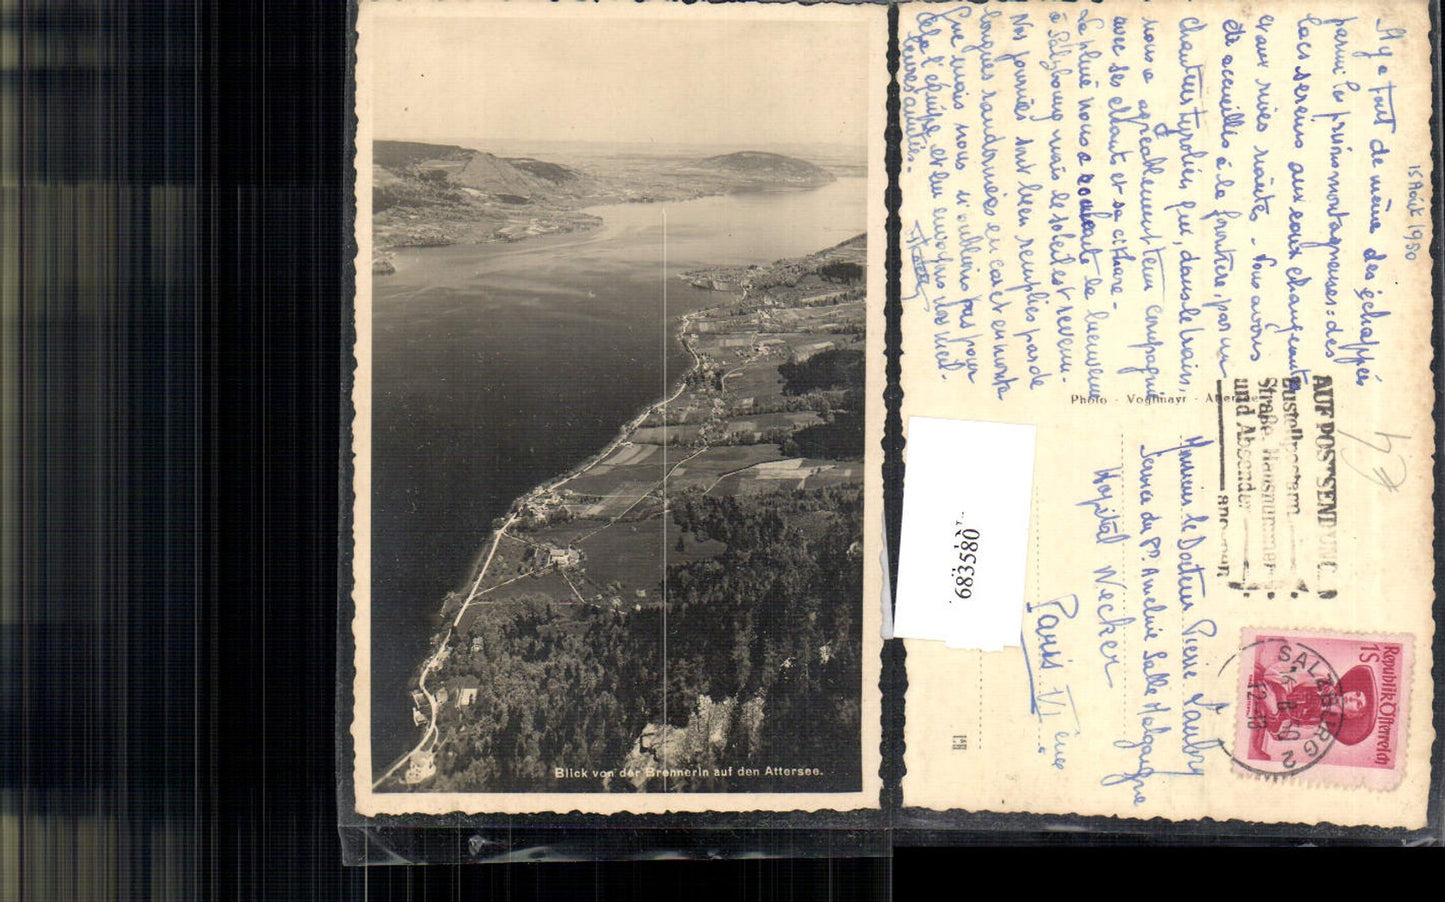 Blick von der Brennerin auf den Attersee.
15 Août 1950
Il y a tout de même des échappés
parmi les prisonniers: des
lacs sereins aux eaux changeantes
et aux rives riantes. Nous avons
été accueillis à la frontière, par un
chanteur tyrolien qui, dans le train,
nous a agréablement tenu compagnie
avec ses chants et sa cithare.
La pluie nous a souhaité la bienvenue
à Salzbourg mais le soleil est revenu.
Nos journées sont bien remplies par de
longues randonnées en car et en
que mais nous n'oublions pas pour
cela l'équipe, et lui envoyons nos meil-
leures amitiés.
Photo - Voglmayr - Attersee
AUF POSTSENDUNGEN
Zustellpostamt
Straße Hausnummer
und Absender
angeben
Monsieur le Docteur Pierre Laubry
Service du Pr. Ameline Salle Malgaigne
Hôpital Necker
Paris VI ème
Republik Österreich
1S
SALZBURG 2
683580